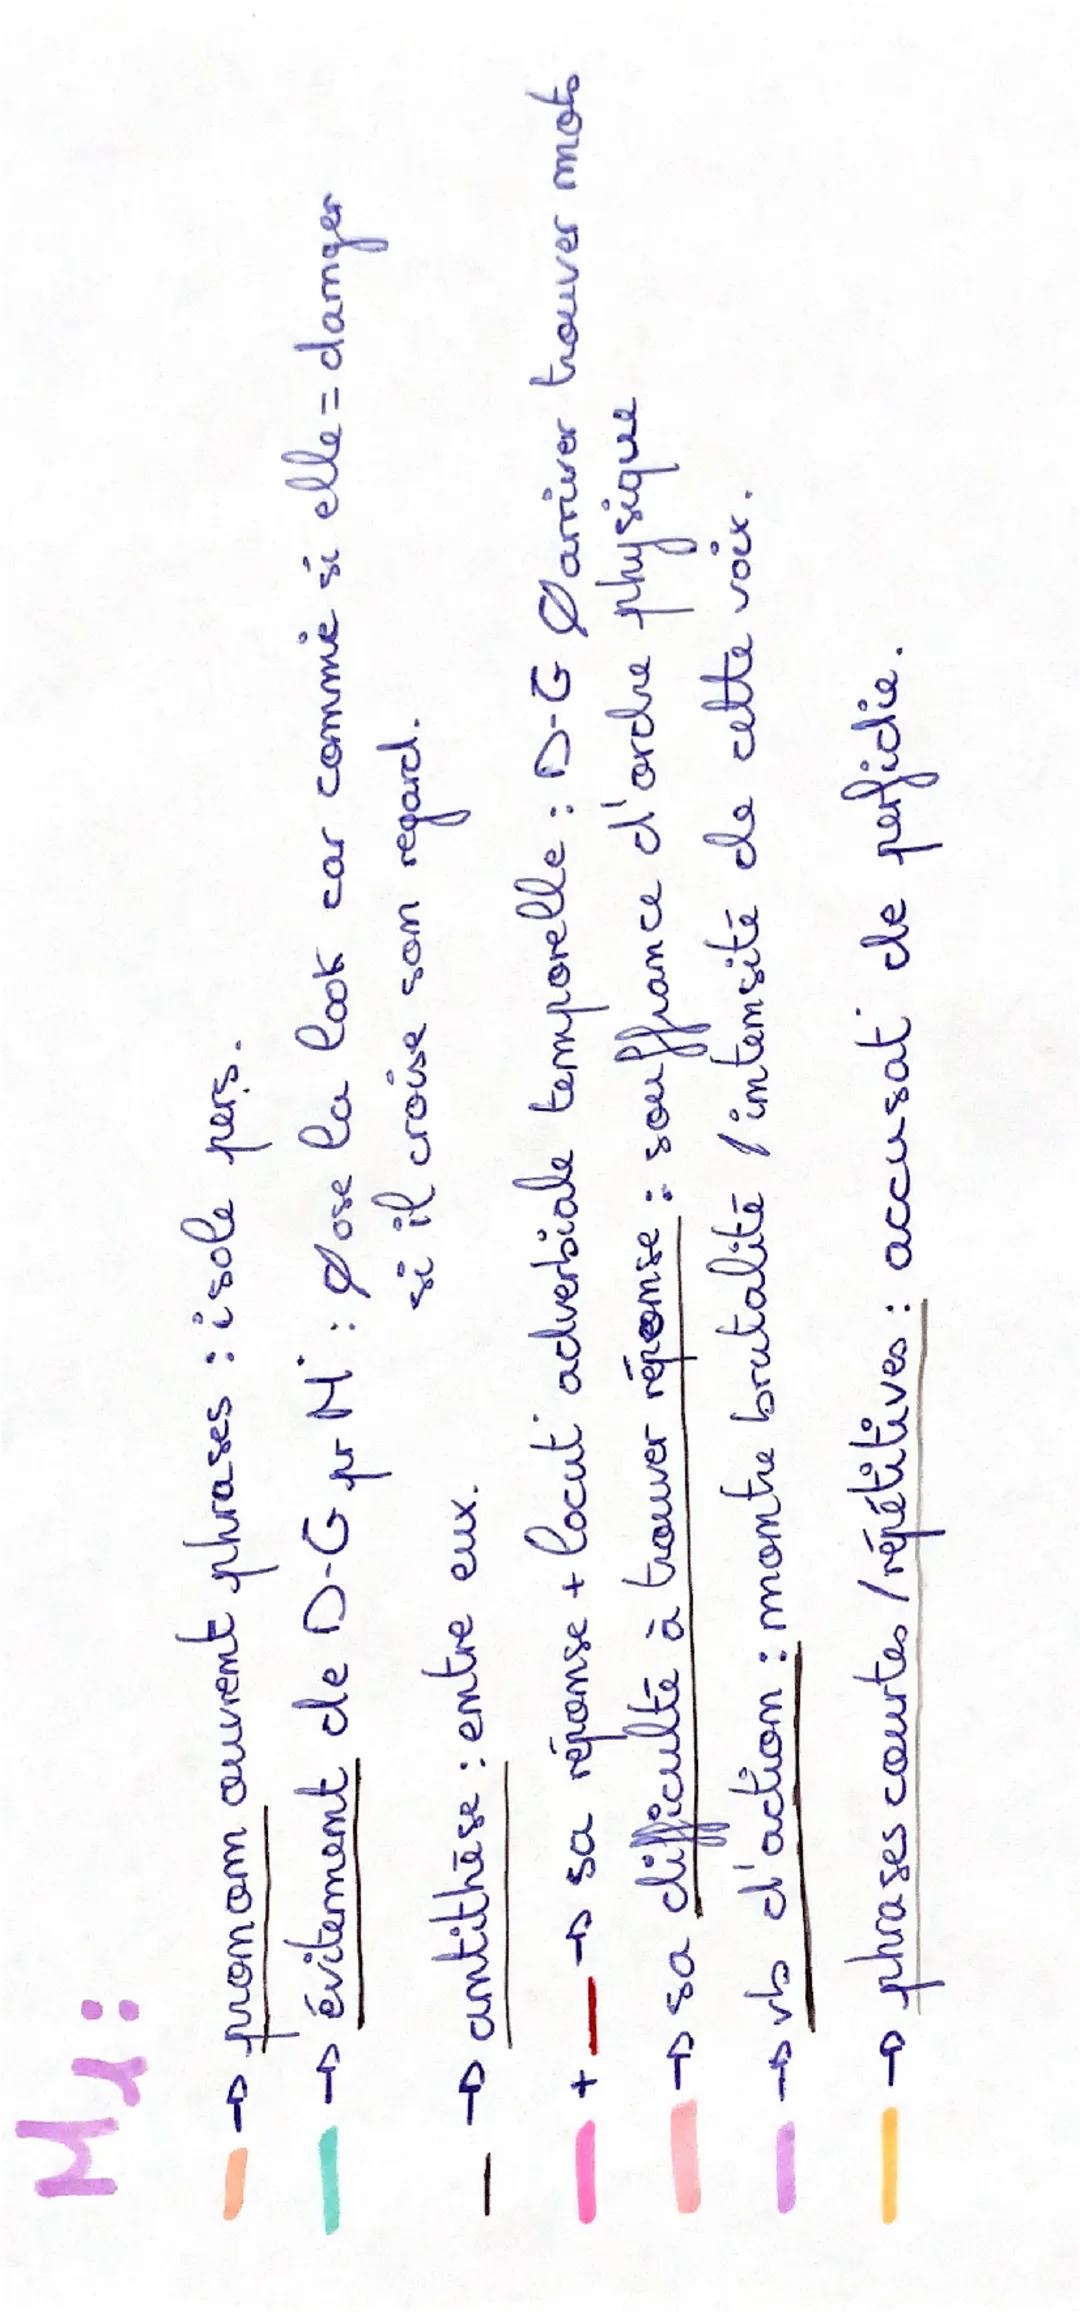 M1 :
→ pronom ouvrent phrases : isole pers.
→ évitement de D-G pr M° : Ø ose la look car comme si elle = danger
si il croise son regard.
→ antithèse : entre eux.
+ — → sa réponse + locut° adverbiale temporelle : D-G Ø arriver trouver mots
→ sa difficulté à trouver réponse : souffrance d'ordre physique
→ vb d'action : montre brutalité / intensité de cette voix.
→ phrases courtes / répétitives : accusat° de perfidie.